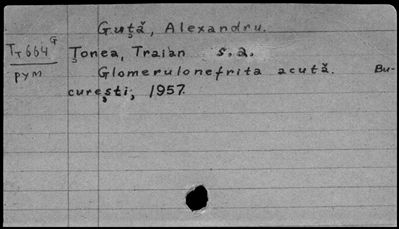 Guță, Alexandru.
Tr 664 G
рум
Țonea, Traian s. a.
Glomerulonefrita acută. Bu-
curești, 1957.